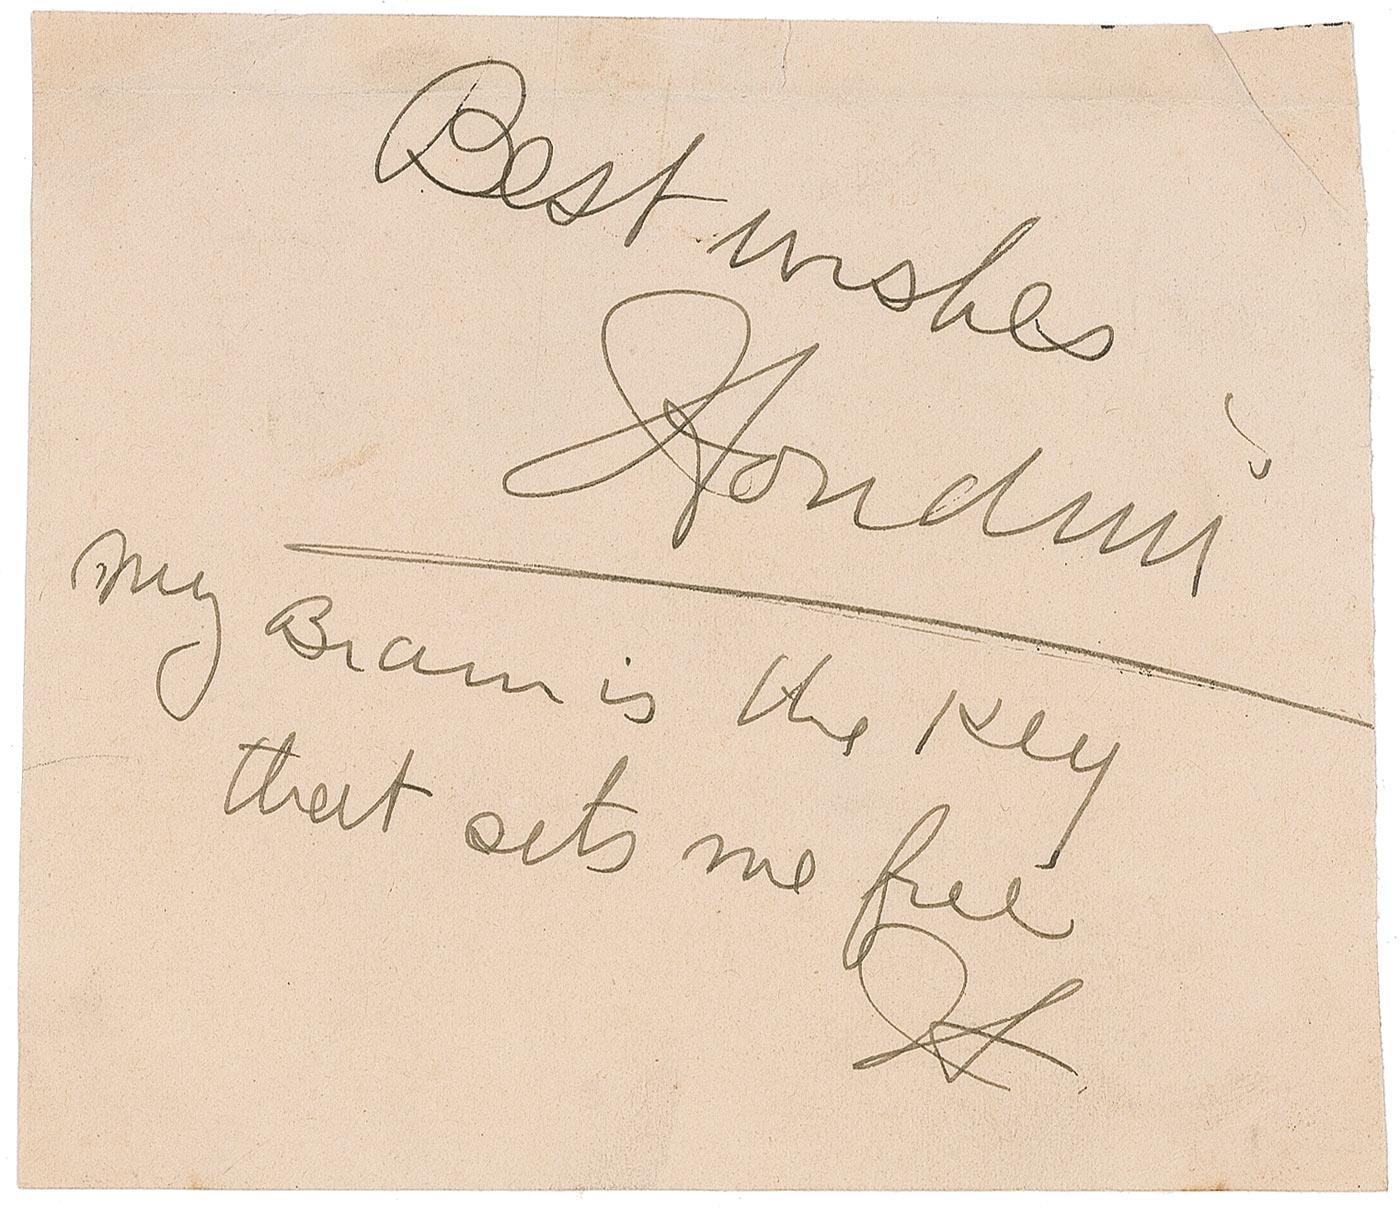 Best wishes
Houdini
My Brain is the Key
that sets me free
H